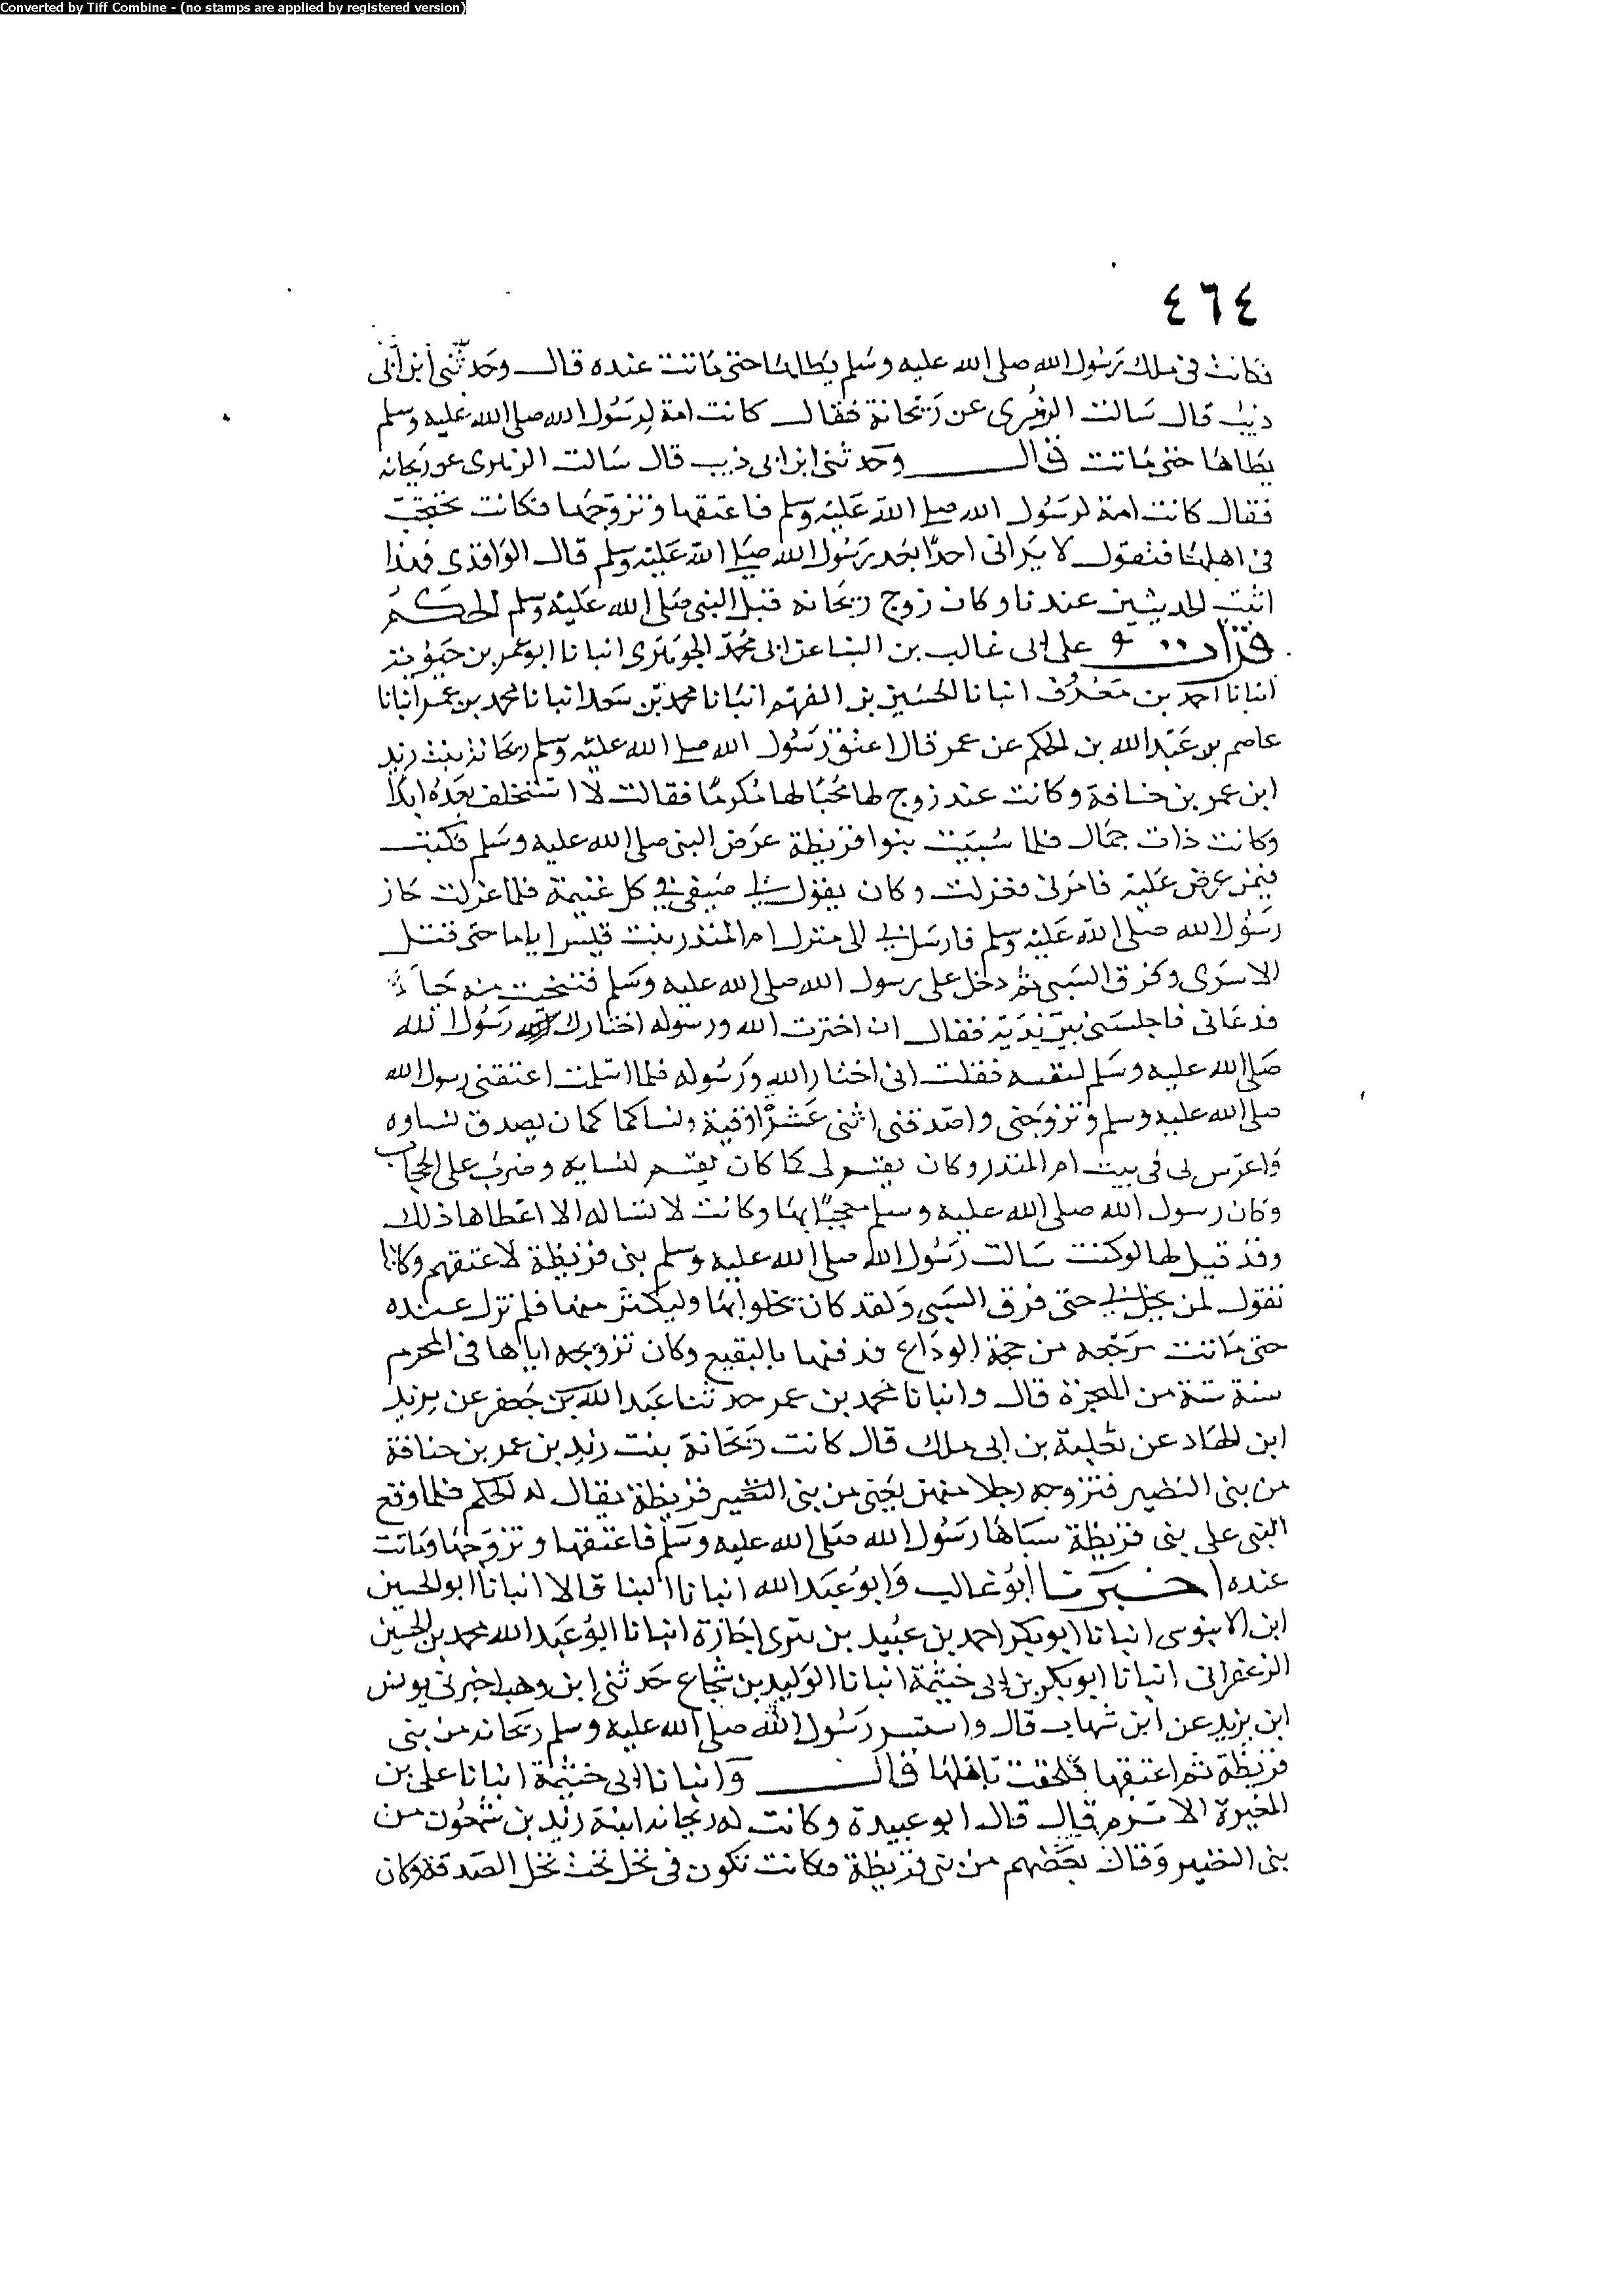 Converted by Tiff Combine - (no stamps are applied by registered version)
٤٦٤
فكانت فى ملك رسول الله صلى الله عليه وسلم يطاها حتى ماتت عنده قال وحدثنى ابن أبى
ذيب قال سالت الزهرى عن ريحانة فقال كانت امة لرسول الله صلى الله عليه وسلم
يطاها حتى ماتت قال وحدثنى ابن ابى ذيب قال سالت الزهرى عن ريحانه
فقال كانت امة لرسول الله صلى الله عليه وسلم فاعتقها وتزوجها فكانت تحتجب
فى اهلها فتقول لا يرانى احدا بعد رسول الله صلى الله عليه وسلم قال الواقدى فهذا
اثبت الحديثين عندنا وكان زوج ريحانه قبل النبى صلى الله عليه وسلم الحكم
قرات على ابى غالب بن البنا عن ابى محمد الجوهرى انبانا ابو عمر بن حيويه
انبانا احمد بن معروف انبانا الحسين بن الفهم انبانا محمد بن سعد انبانا محمد بن عمر انبانا
عاصم بن عبد الله بن الحكم عن عمر قال اعتق رسول الله صلى الله عليه وسلم ريحانة بنت زيد
ابن عمر بن خنافة وكانت عند زوج لها محبا لها مكرما فقالت لا استخلف بعده ابدا
وكانت ذات جمال فلما سبيت بنوا قريظة عرض النبى صلى الله عليه وسلم فكنت
فيمن عرض عليه فامرنى فعزلت وكان يقول لى صفى فى كل غنيمة فلما عزلت خار
رسول الله صلى الله عليه وسلم فارسل بى الى منزل ام المنذر بنت قيس اياما حتى قتل
الاسرى وفرق السبى ثم دخل على رسول الله صلى الله عليه وسلم فتنحيت منه حيا
فدعانى فاجلسنى بين يديه فقال ان اخترت الله ورسوله اختارك رسول الله
صلى الله عليه وسلم لنفسه فقلت انى اختار الله ورسوله فلما اسلمت اعتقنى رسول الله
صلى الله عليه وسلم وتزوجنى واصدقنى اثنى عشر اوقية ونشا كما كان يصدق نساوه
واعرس لى فى بيت ام المنذر وكان يقسم لى كما كان يقسم لنسايه وضرب على الحجاب
وكان رسول الله صلى الله عليه وسلم معجبا بها وكانت لا تساله الا اعطاها ذلك
وقد قيل لها لو كنت سالت رسول الله صلى الله عليه وسلم بنى قريظة لاعتقهم وكانت
تقول لمن يخل بى حتى فرق السبى ولقد كان يخلو بها وليكثر منها فلم تزل عنده
حتى ماتت مرجعه من حجة الوداع فدفنها بالبقيع وكان تزويجه اياها فى المحرم
سنة ستة من الهجرة قال وانبانا محمد بن عمر حدثنا عبد الله بن جعفر عن يزيد
ابن الهاد عن ثعلبة بن ابى ملك قال كانت ريحانة بنت زيد بن عمر بن خنافة
من بنى النضير فتزوجه رجلا منهن يعنى من بنى النضير قريظة يقال له الحكم فلما وقع
السبى على بنى قريظة سباها رسول الله صلى الله عليه وسلم فاعتقها وتزوجها وماتت
عنده اخبرنا ابو غالب وابو عبد الله انبانا البنا قالا انبانا ابو الحسين
ابن الابنوسى انبانا ابو بكر احمد بن عبيد بن بيرى اجازة انبانا ابو عبد الله محمد بن الحسين
الزعفرانى انبانا ابو بكر بن ابى خيثمة انبانا الوليد بن شجاع حدثنى ابن وهب اخبرنى يونس
ابن يزيد عن ابن شهاب قال واستسر رسول الله صلى الله عليه وسلم ريحانه من بنى
قريظة ثم اعتقها فلحقت باهلها قال وانبانا ابى خيثمة انبانا على بن
المغيرة الاثرم قال قال ابو عبيدة وكانت له ريحانه ابنة زيد بن شمعون من
بنى النضير وقال بعضهم من بنى قريظة وكانت تكون فى نخل تحت نخل الصدقة وكان